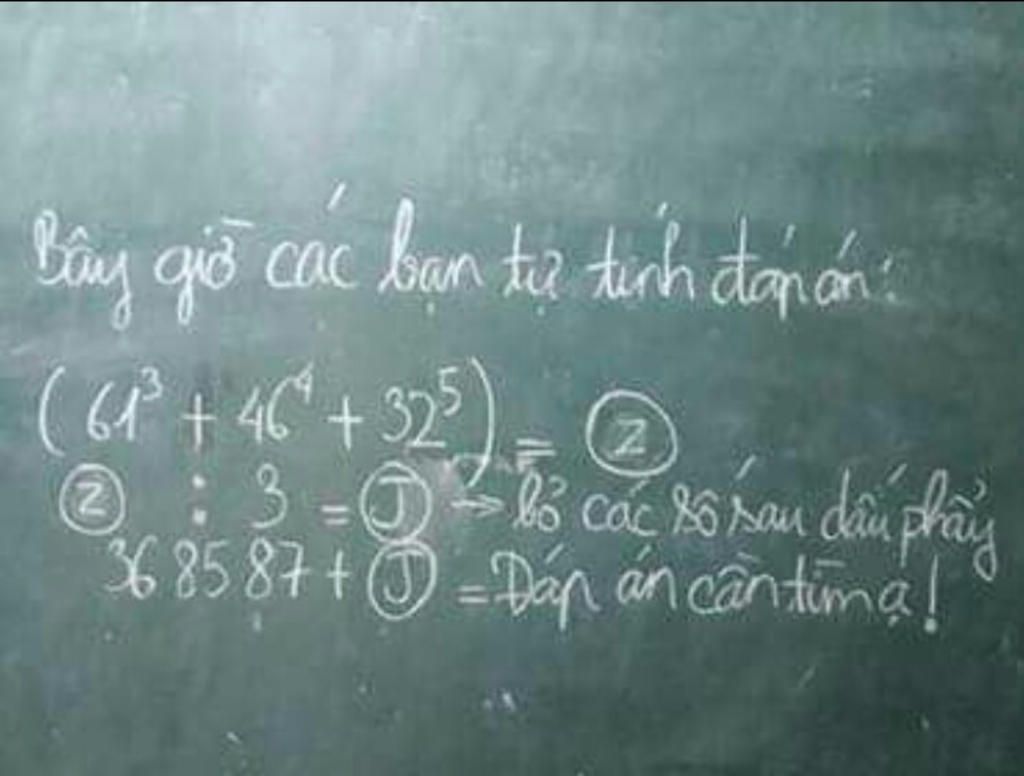 Bây giờ các bạn tự tính đáp án:
(61³ + 46⁴ + 32⁵) = Z
Z : 3 = J → bỏ các số sau dấu phẩy
368587 + J = Đáp án cần tìm ạ!